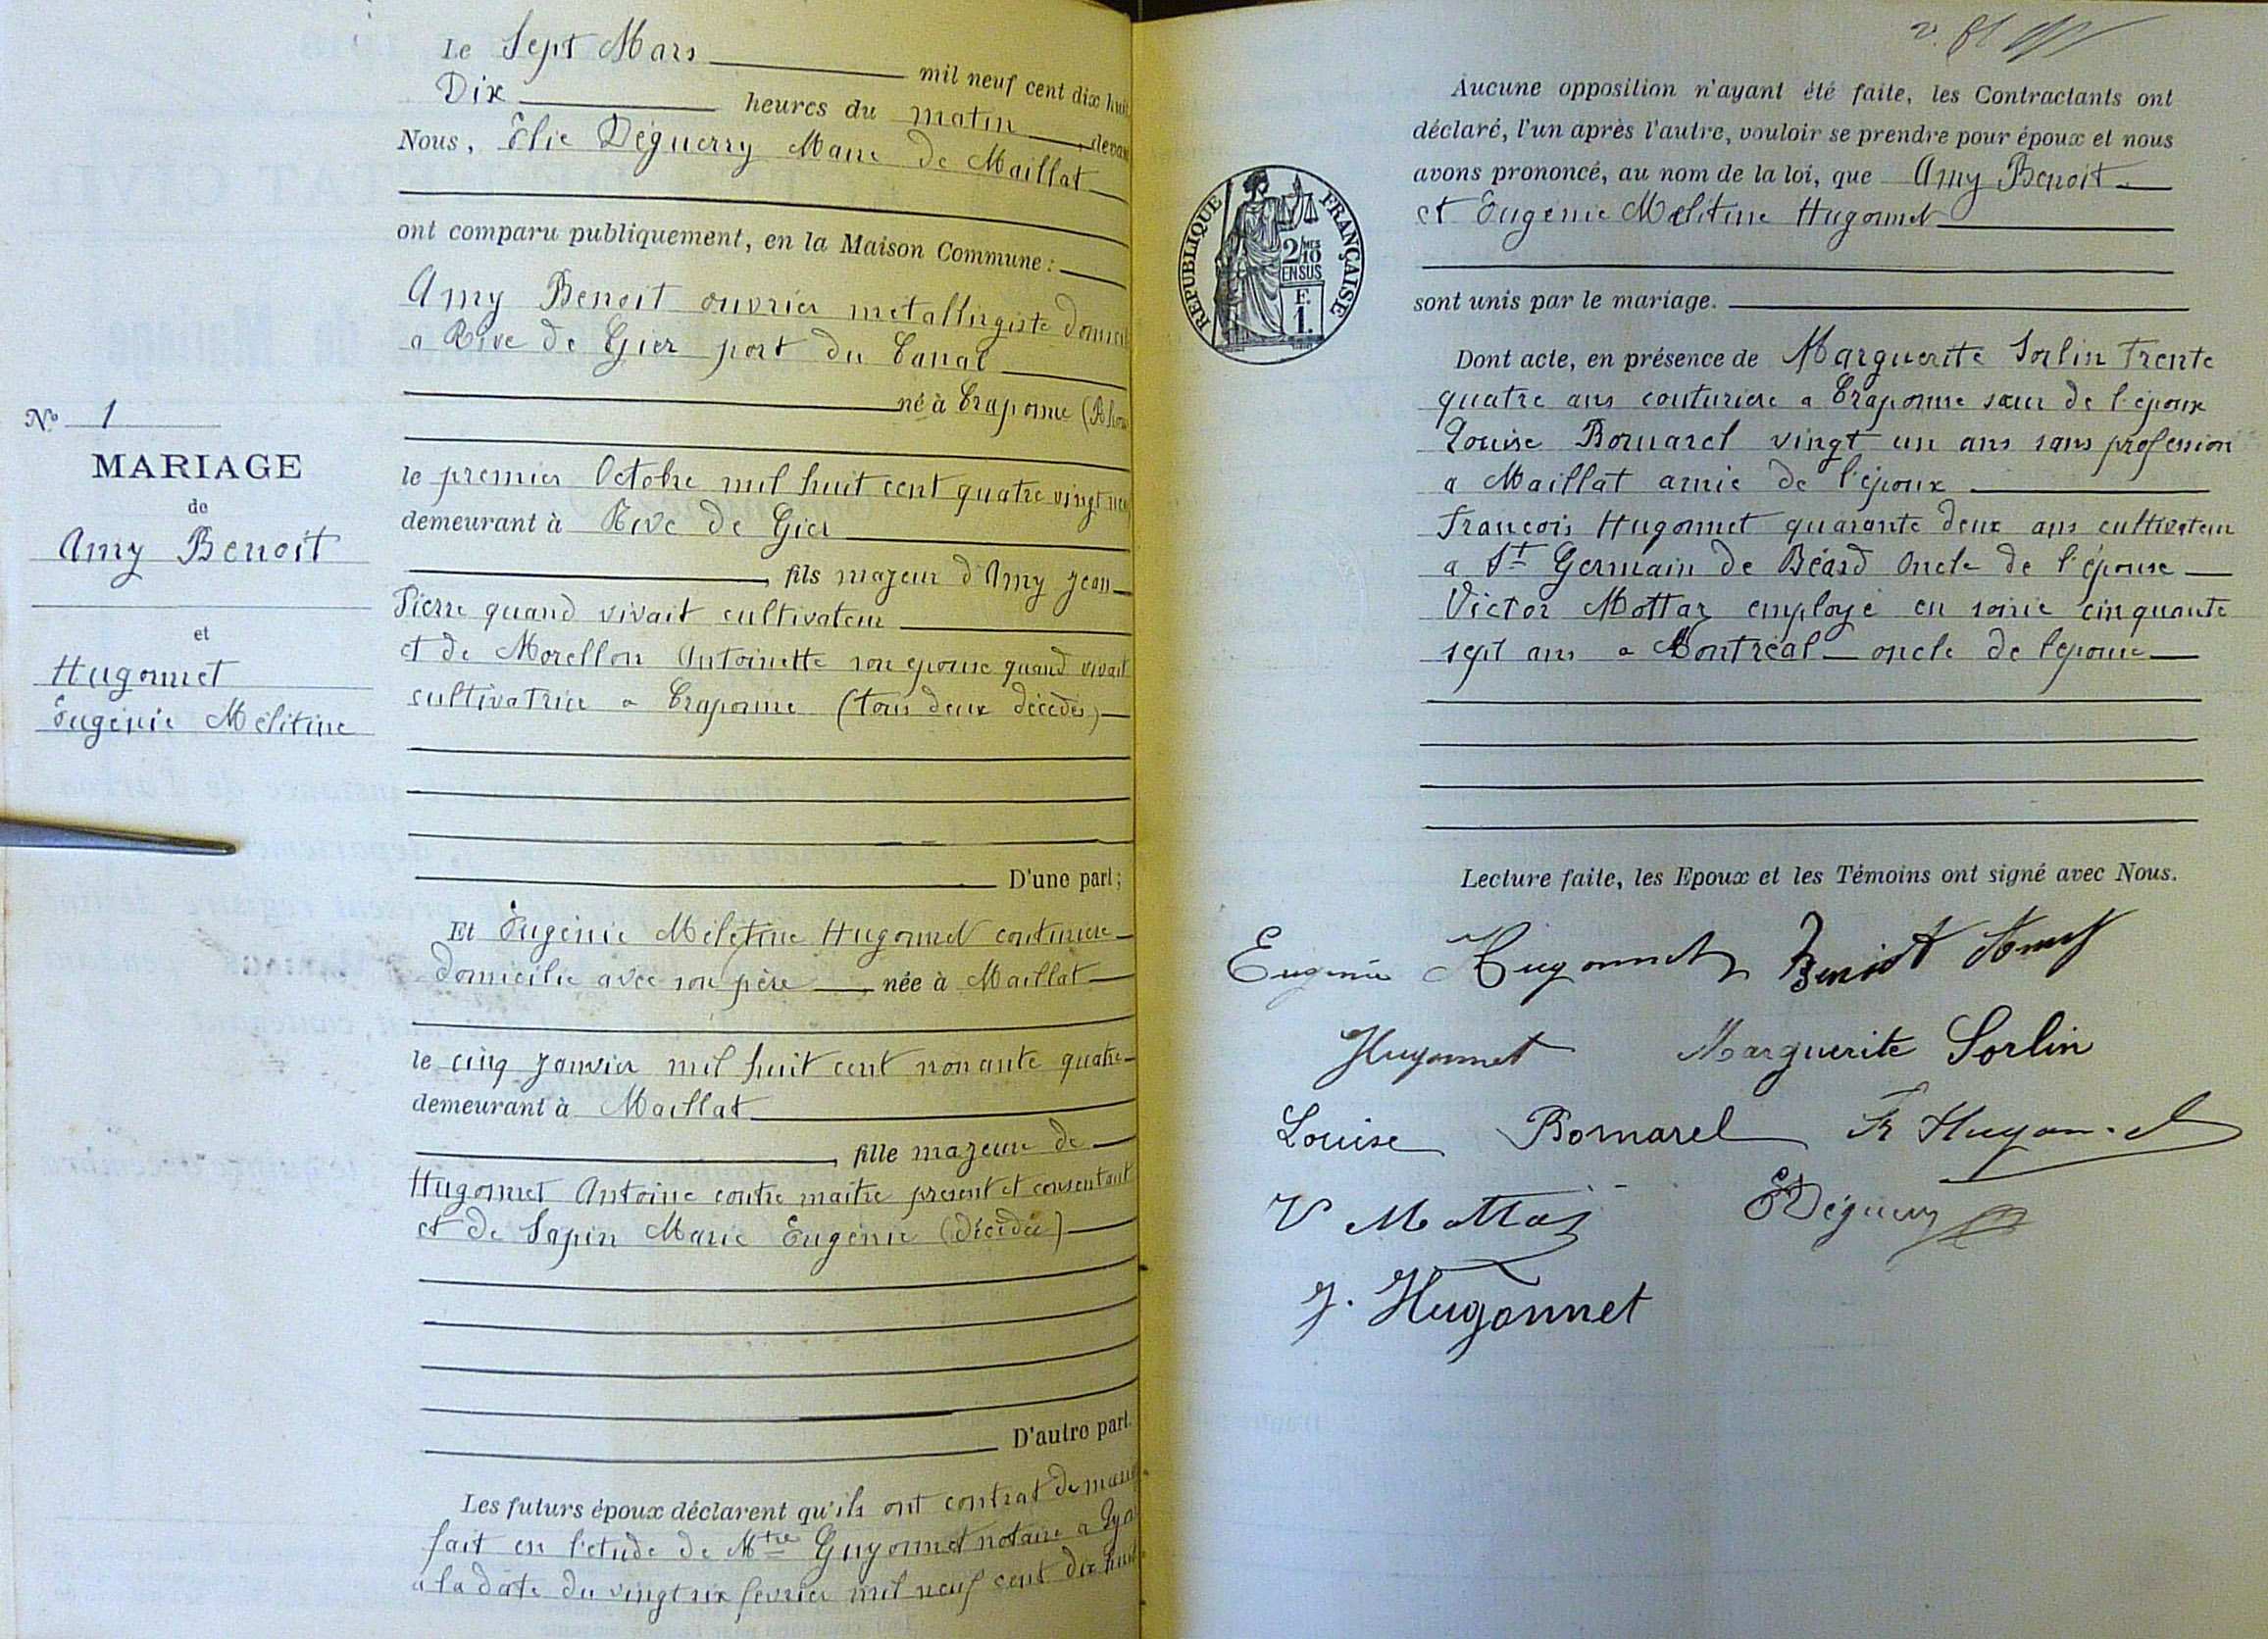 Le Sept Mars mil neuf cent dix huit
Dix heures du matin, devant
Nous, Elie Déguerry Maire de Maillat
ont comparu publiquement, en la Maison Commune :
Amy Benoit ouvrier metallurgiste domicilié
a Rive de Gier port du Canal
né à Craponne (Rhone
le premier Octobre mil huit cent quatre vingt neuf
demeurant à Rive de Gier
, fils majeur d'Amy Jean
Pierre quand vivait cultivateur
et de Morellon Antoinette son epouse quand vivait
cultivatrice a Craponne (tous deux décédés)
D'une part ;
Nº 1
MARIAGE
de
Amy Benoit
et
Hugonnet
Eugénie Mélitine
Et Eugénie Mélitine Hugonnet couturiere
domicilie avec son père née à Maillat
le cinq Janvier mil huit cent nonante quatre
demeurant à Maillat
, fille majeure de
Hugonnet Antoine contre maitre present et consentant
et de Sapin Marie Eugénie (décédée)
D'autre part.
Les futurs époux déclarent qu'ils ont contrat de mariage
fait en l'etude de Mtre Guyonnet notaire a
a la date du vingt six fevrier mil neuf cent dix huit
Aucune opposition n'ayant été faite, les Contractants ont
déclaré, l'un après l'autre, vouloir se prendre pour époux et nous
avons prononcé, au nom de la loi, que Amy Benoit
et Eugénie Melitine Hugonnet
sont unis par le mariage.
REPUBLIQUE FRANÇAISE
2/MES
10
EN SUS
F.
1.
Dont acte, en présence de Marguerite Sorlin Trente
quatre ans couturiere a Craponne sœur de l'époux
Louise Bornarel vingt un ans sans profession
a Maillat amie de l'époux
François Hugonnet quarante deux ans cultivateur
a St Germain de Béard Oncle de l'épouse
Victor Mottaz employé en soirie cinquante
sept ans a Montréal oncle de lepouse
Lecture faite, les Epoux et les Témoins ont signé avec Nous.
Eugénie Hugonnet Benoit Amy
Hugonnet Marguerite Sorlin
Louise Bornarel Fr Hugonnet
V Mottaz E Déguerry
J. Hugonnet